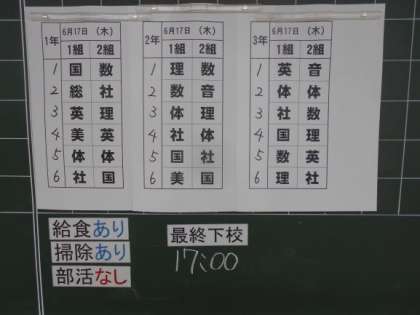 1年 6月17日 (木)
1組 2組
1 国 数
2 総 社
3 英 理
4 美 英
5 体 体
6 社 国
2年 6月17日 (木)
1組 2組
1 理 数
2 数 音
3 体 理
4 社 体
5 国 社
6 美 国
3年 6月17日 (木)
1組 2組
1 英 音
2 体 体
3 社 数
4 国 理
5 数 英
6 理 社
給食あり
掃除あり
部活なし
最終下校
17:00